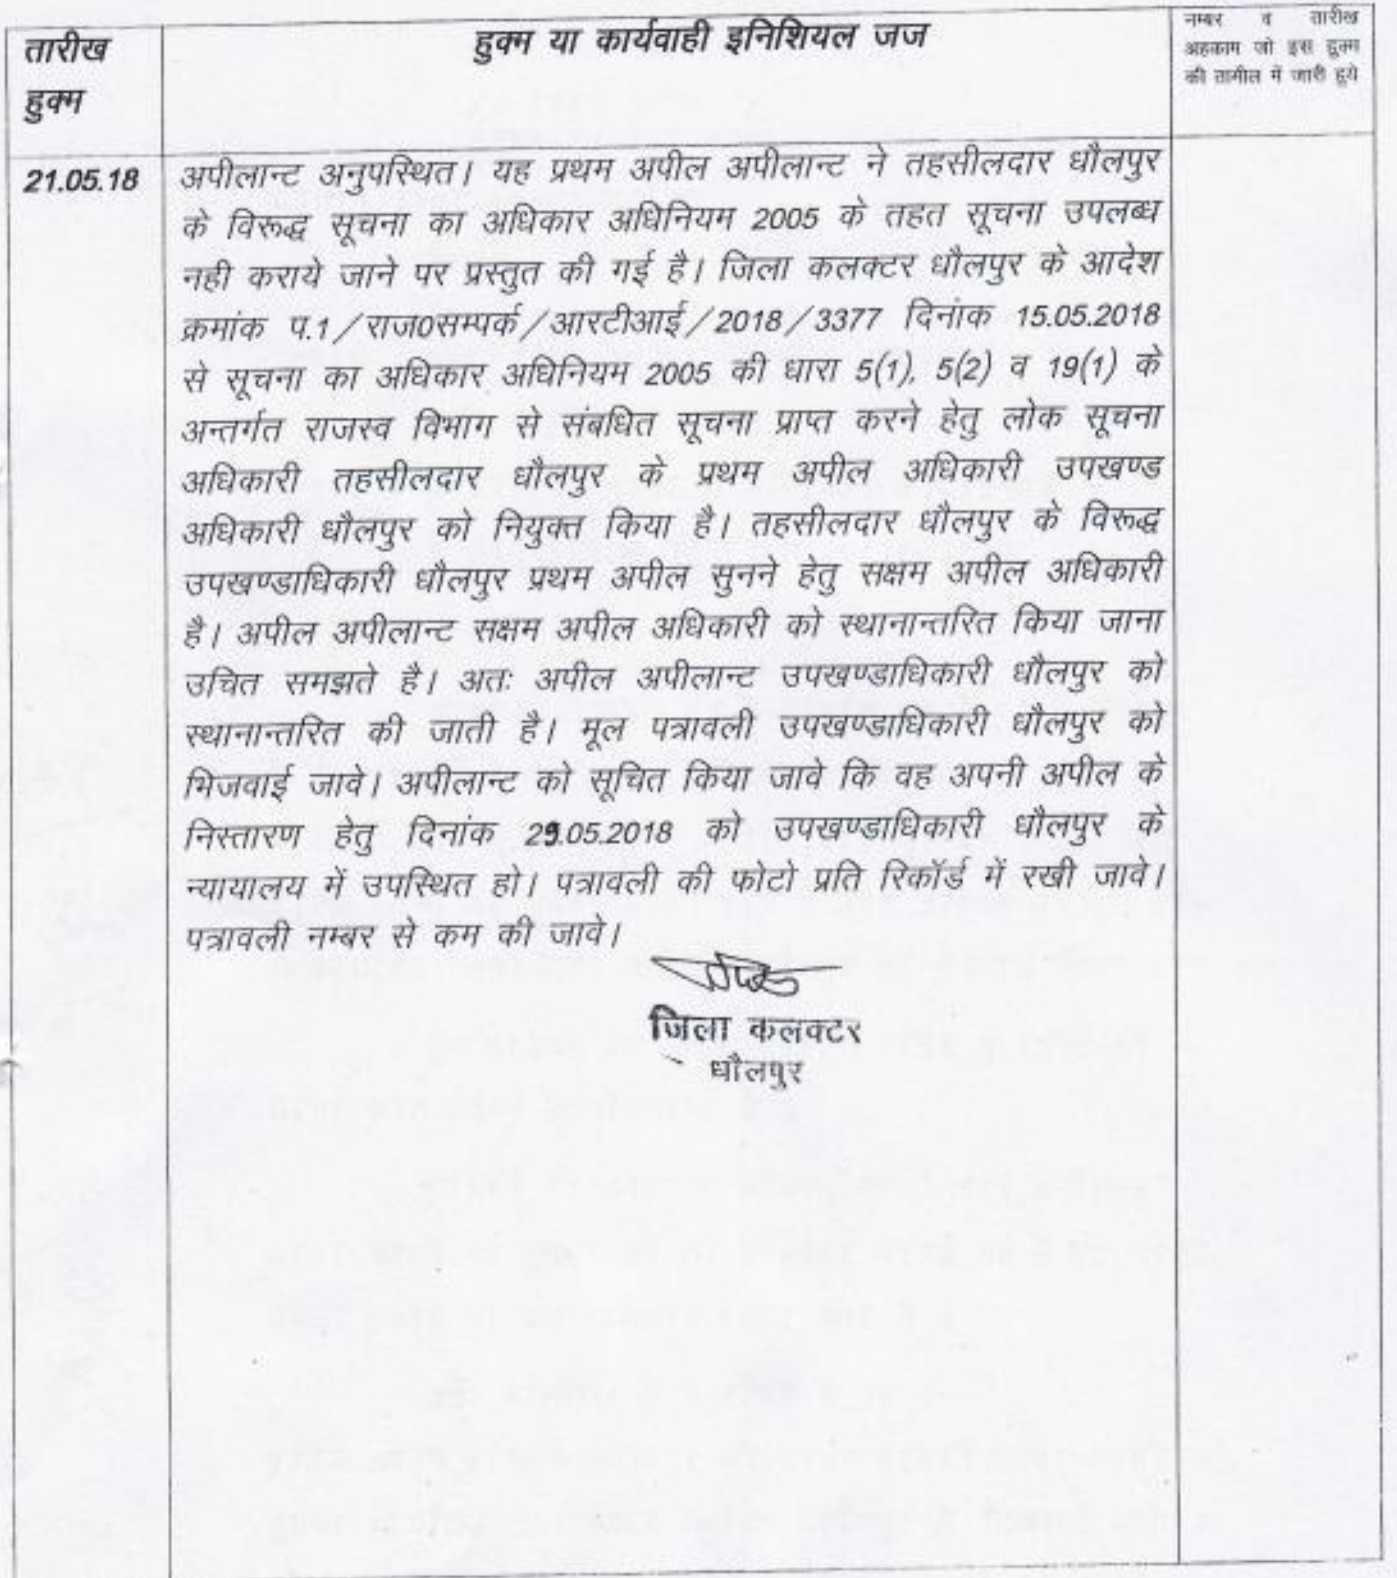 तारीख
हुक्म
हुक्म या कार्यवाही इनिशियल जज
नम्बर व तारीख
अहकाम जो इस हुक्म
की तामील में जारी हुये
21.05.18
अपीलान्ट अनुपस्थित। यह प्रथम अपील अपीलान्ट ने तहसीलदार धौलपुर
के विरूद्ध सूचना का अधिकार अधिनियम 2005 के तहत सूचना उपलब्ध
नही कराये जाने पर प्रस्तुत की गई है। जिला कलक्टर धौलपुर के आदेश
क्रमांक प.1/राज0सम्पर्क/आरटीआई/2018/3377 दिनांक 15.05.2018
से सूचना का अधिकार अधिनियम 2005 की धारा 5(1), 5(2) व 19(1) के
अन्तर्गत राजस्व विभाग से संबधित सूचना प्राप्त करने हेतु लोक सूचना
अधिकारी तहसीलदार धौलपुर के प्रथम अपील अधिकारी उपखण्ड
अधिकारी धौलपुर को नियुक्त किया है। तहसीलदार धौलपुर के विरूद्ध
उपखण्डाधिकारी धौलपुर प्रथम अपील सुनने हेतु सक्षम अपील अधिकारी
है। अपील अपीलान्ट सक्षम अपील अधिकारी को स्थानान्तरित किया जाना
उचित समझते है। अतः अपील अपीलान्ट उपखण्डाधिकारी धौलपुर को
स्थानान्तरित की जाती है। मूल पत्रावली उपखण्डाधिकारी धौलपुर को
भिजवाई जावे। अपीलान्ट को सूचित किया जावे कि वह अपनी अपील के
निस्तारण हेतु दिनांक 29.05.2018 को उपखण्डाधिकारी धौलपुर के
न्यायालय में उपस्थित हो। पत्रावली की फोटो प्रति रिकॉर्ड में रखी जावे।
पत्रावली नम्बर से कम की जावे।
जिला कलक्टर
धौलपुर